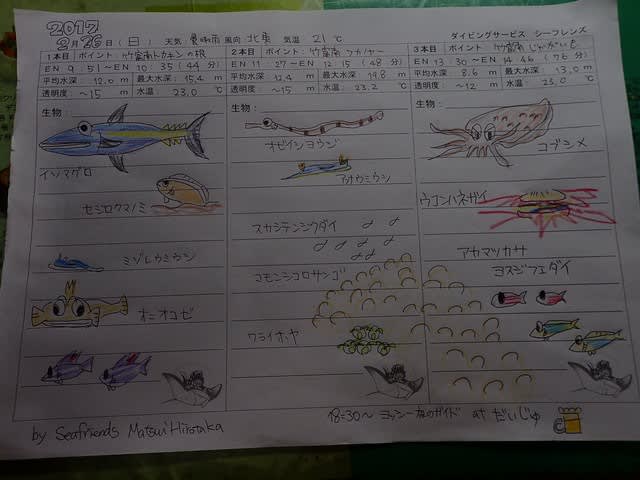 2017
2月26日(日) 天気 風向 北東 気温 21℃ ダイビングサービス シーフレンズ
1本目 ポイント:竹富南トカキンの根
EN 9:51~EN 10:35(44分)
平均水深:12.0m 最大水深:15.4m
透明度:~15m 水温:23.0℃
生物:
イソマグロ
セジロクマノミ
ミゾレウミウシ
オニオコゼ
2本目 ポイント:竹富南
EN 11:27~EN 12:15(48分)
平均水深:12.4m 最大水深:19.8m
透明度:~15m 水温:23.2℃
生物:
オビイシヨウジ
ウミウシ
スカシテンジクダイ
コモンシコロサンゴ
ワライホヤ
3本目 ポイント:竹富南じゃがいも
EN 13:30~EN 14:46(76分)
平均水深:8.6m 最大水深:13.0m
透明度:~12m 水温:23.0℃
生物:
コブシメ
ウコンハネガイ
アカマツカサ
ヨスジフエダイ
by Seafriends Matsui Hirotaka
18:30~ ガイド at だいじゅ